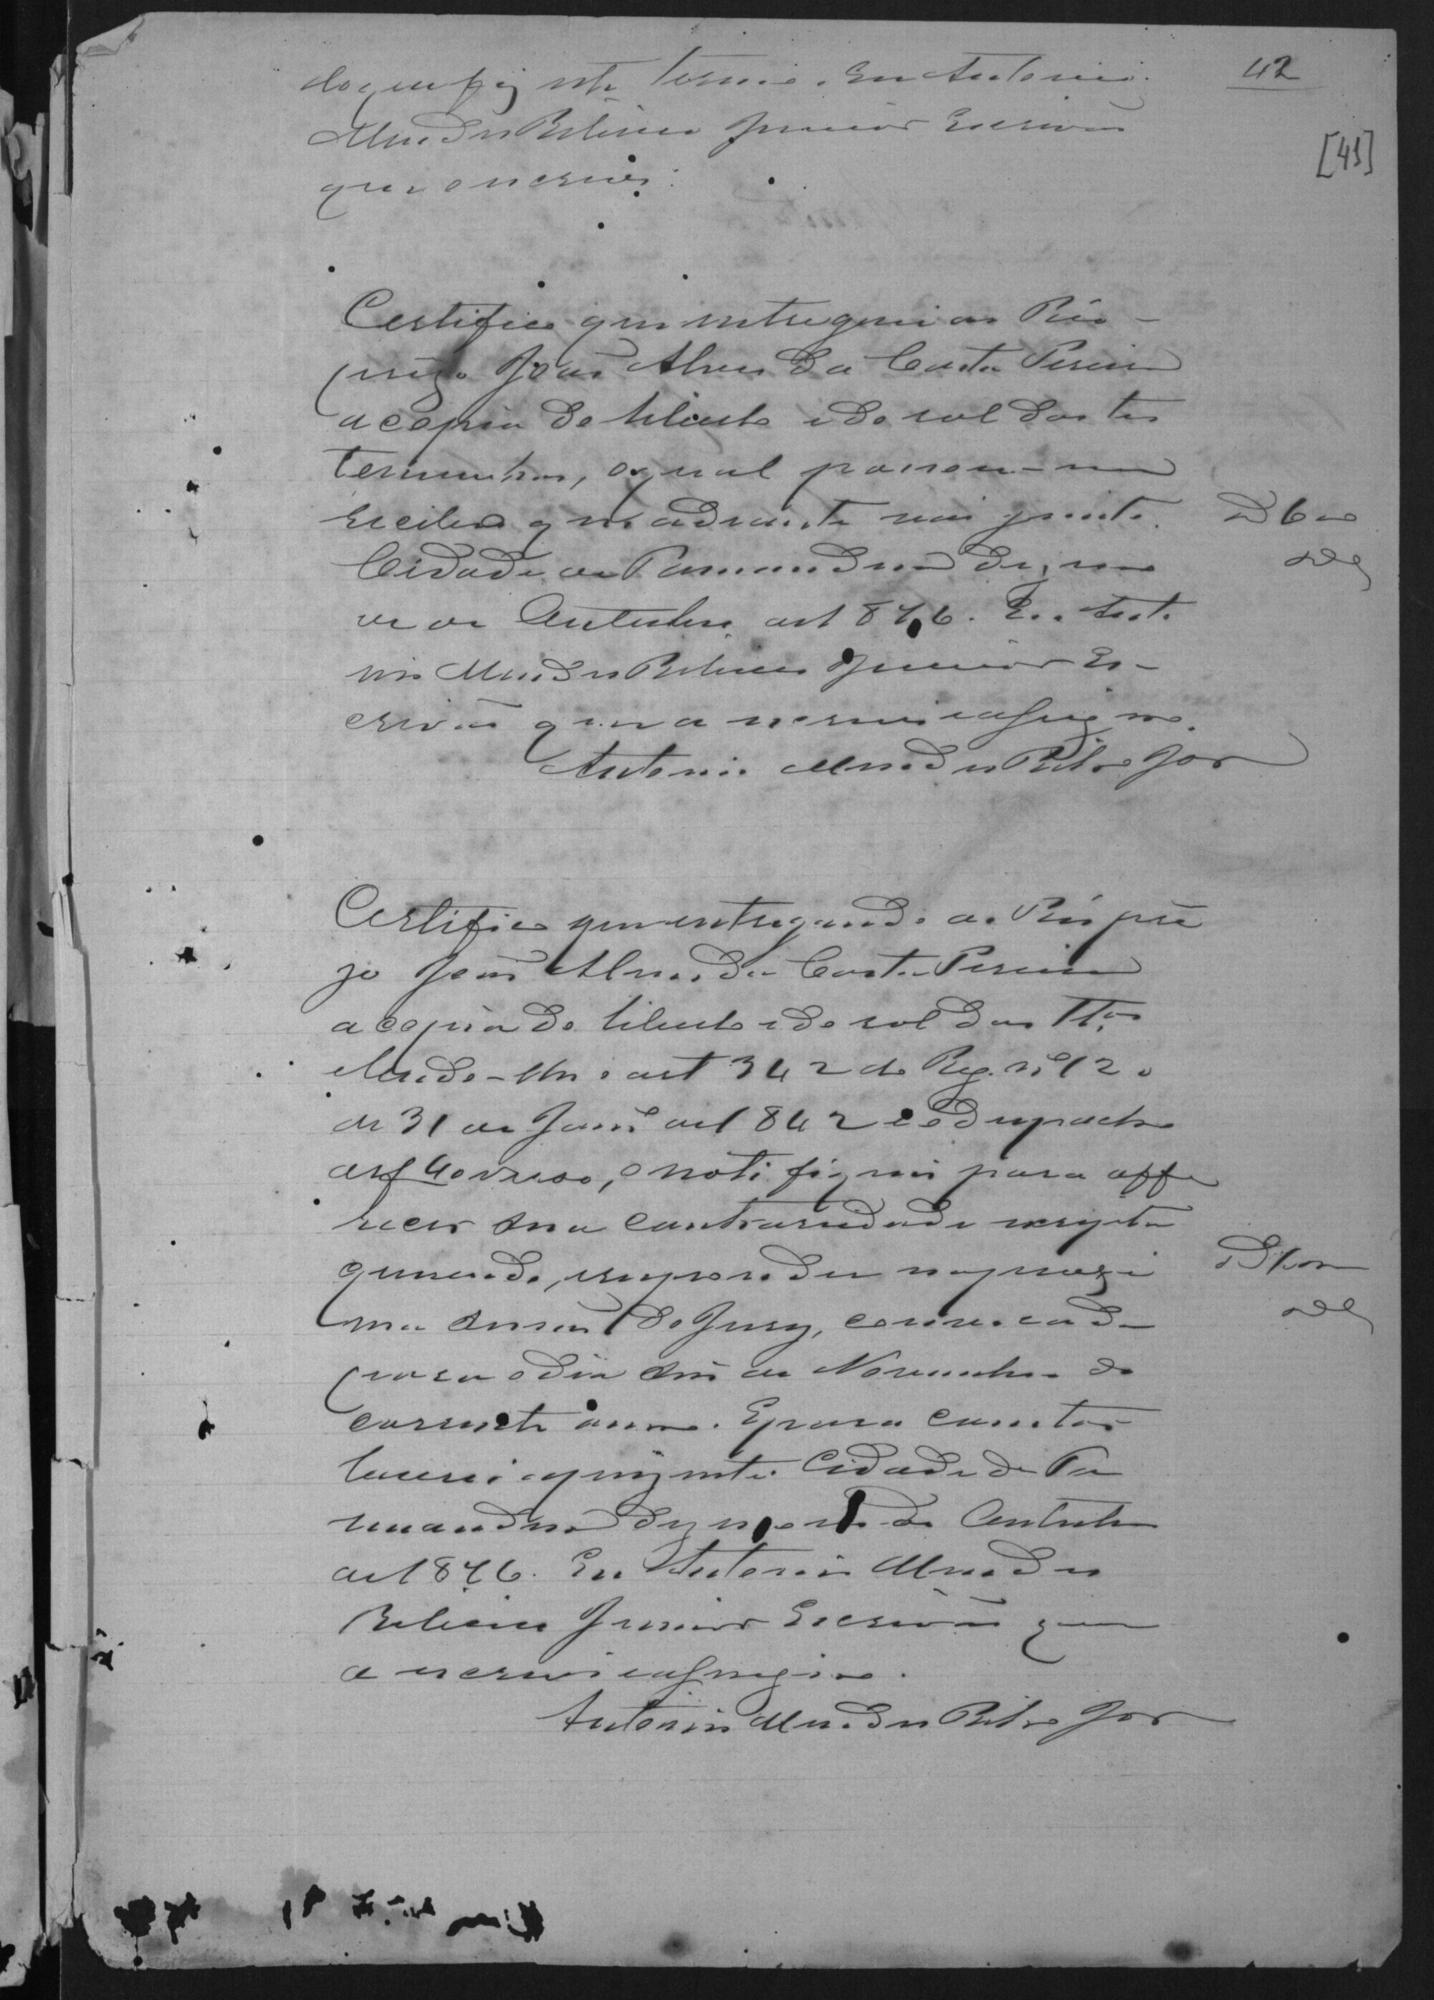 42
[41]
do que fiz este termo. Eu Antonio
Mendes Ribeiro Junior Escrivão
que o escrevi.
Certifico que entreguei ao Réo
prezo João Alves da Costa Pereira
a copia do libello e do rol das tes
temunhas, o qual passou-me
recibo que adiante vai junto.
Cidade de Parnandua dezeno
ve de Outubro de 1876. Eu Anto
nio Mendes Ribeiro Junior Es-
crivão que a escrevi e assigno.
Antonio Mendes Ribro Jor
Certifico que entregando ao Réo pre
zo João Alves da Costa Pereira
a copia do libello e do rol das Ttas
lendo-lhe o art 342 do Reg. nº 120
de 31 de Janrº de 1842 e o despacho
de f 40 verso, o notifiquei para offe
recer sua contrariedade escripta
querendo, e responder na proxi
ma sessão do Jury, convocada
para o dia seis de Novembro do
corrente anno. E para constar
lavrei a prezente. Cidade de Pa
rnandua dezenove de Outubro
de 1876. Eu Antonio Mendes
Ribeiro Junior Escrivão que
a escrevi e assigno.
Antonio Mendes Ribro Jor